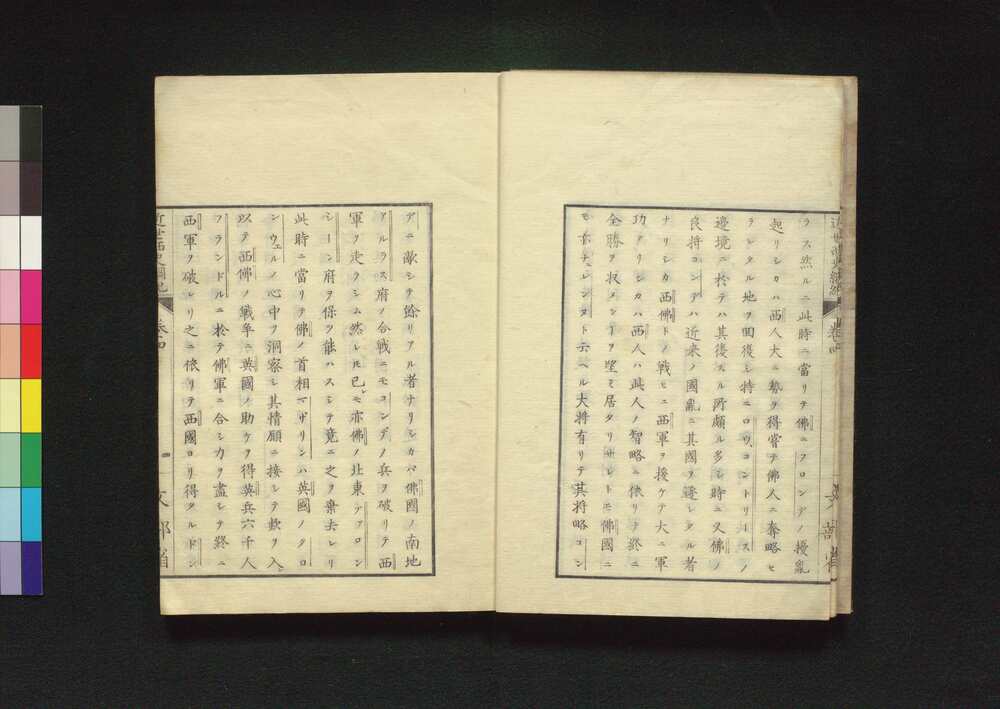 ラス然ルニ此時ニ當リテ佛ニフロンデノ擾亂
起リシカハ西人大ニ勢ヲ得嘗テ佛人ニ奪略セ
ラレタル地ヲ回復シ特ニロウ、コントリースノ
邊境ニ於テハ其復スル所頗ル多シ時ニ又佛ノ
良将コンデハ近来ノ國亂ニ其國ヲ逐レタル者
ナリシカ西佛トノ戰ヒニ西軍ヲ授ケテ大ニ軍
功アリシカハ西人ハ此人ノ智略ニ依リテ終ニ
全勝ヲ収メンヿヲ望ミ居タリサレトモ佛國ニ
モ亦チレンヌト云ヘル大将有リテ其将略コン
デニ敵シテ餘リアル者ナリシカバ佛國ノ南地
アルラス府ノ合戰ニモコンデノ兵ヲ破リテ西
軍ヲ走ラシム然レ𪜈已ニモ亦佛ノ北東ヷアロン
シーン府ヲ保ツ能ハスシテ竟ニ之ヲ棄去レリ
此時ニ當リテ佛ノ首相マザリンハ英國ノクロ
ンウェルノ心中ヲ洞察シ其情願ニ接シテ歓ヲ入レ
以テ西佛ノ戰争ニ英國ノ助ケヲ得英兵六千人
フランドルニ於テ佛軍ニ合シ力ヲ盡シテ終ニ
西軍ヲ破レリ之ニ依リテ西國ヨリ得タルドン
卷四
文部省